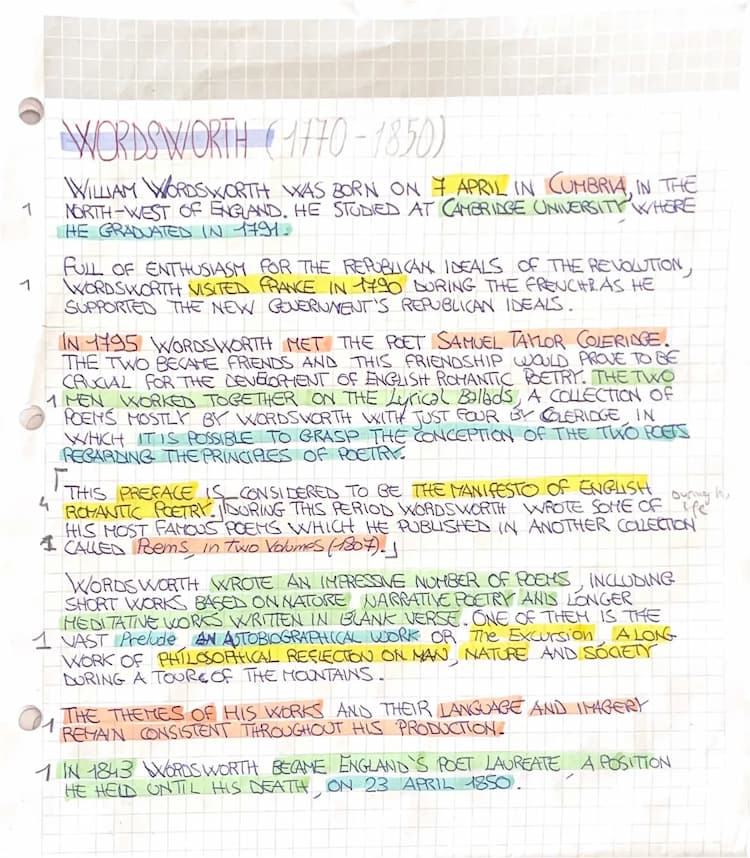 WORDSWORTH (1770-1850)
WILLIAM WORDSWORTH WAS BORN ON 7 APRIL IN CUMBRIA, IN THE
1 NORTH-WEST OF ENGLAND. HE STUDIED AT CAMBRIDGE UNIVERSITY, WHERE
HE GRADUATED IN 1791.
FULL OF ENTHUSIASM FOR THE REPUBLICAN IDEALS OF THE REVOLUTION,
1 WORDSWORTH VISITED FRANCE IN 1790 DURING THE FRENCH AS HE
SUPPORTED THE NEW GOVERNMENT'S REPUBLICAN IDEALS.
IN 1795 WORDSWORTH MET THE POET SAMUEL TAYLOR COLERIDGE.
THE TWO BECAME FRIENDS AND THIS FRIENDSHIP WOULD PROVE TO BE
CRUCIAL FOR THE DEVELOPMENT OF ENGLISH ROMANTIC POETRY. THE TWO
1 MEN WORKED TOGETHER ON THE Lyrical Ballads, A COLLECTION OF
POEMS MOSTLY BY WORDSWORTH WITH JUST FOUR BY COLERIDGE, IN
WHICH IT IS POSSIBLE TO GRASP THE CONCEPTION OF THE TWO POETS
REGARDING THE PRINCIPLES OF POETRY.
THIS PREFACE IS CONSIDERED TO BE THE MANIFESTO OF ENGLISH
4 ROMANTIC POETRY. DURING THIS PERIOD WORDSWORTH WROTE SOME OF During life
HIS MOST FAMOUS POEMS WHICH HE PUBLISHED IN ANOTHER COLECTION
1 CALLED Poems, in Two Volumes (1807).
WORDSWORTH WROTE AN IMPRESSIVE NUMBER OF POEMS, INCLUDING
SHORT WORKS BASED ON NATURE, NARRATIVE POETRY AND LONGER
MEDITATIVE WORKS WRITTEN IN BLANK VERSE. ONE OF THEM IS THE
1 VAST Prelude, AN AUTOBIOGRAPHICAL WORK OR The Excursion, A LONG
WORK OF PHILOSOPHICAL REFLECTION ON MAN, NATURE AND SOCIETY
DURING A TOUR OF THE MOUNTAINS.
THE THEMES OF HIS WORKS AND THEIR LANGUAGE AND IMAGERY
1 REMAIN CONSISTENT THROUGHOUT HIS PRODUCTION.
1 IN 1843 WORDSWORTH BECAME ENGLAND'S POET LAUREATE, A POSITION
HE HELD UNTIL HIS DEATH, ON 23 APRIL 1850.